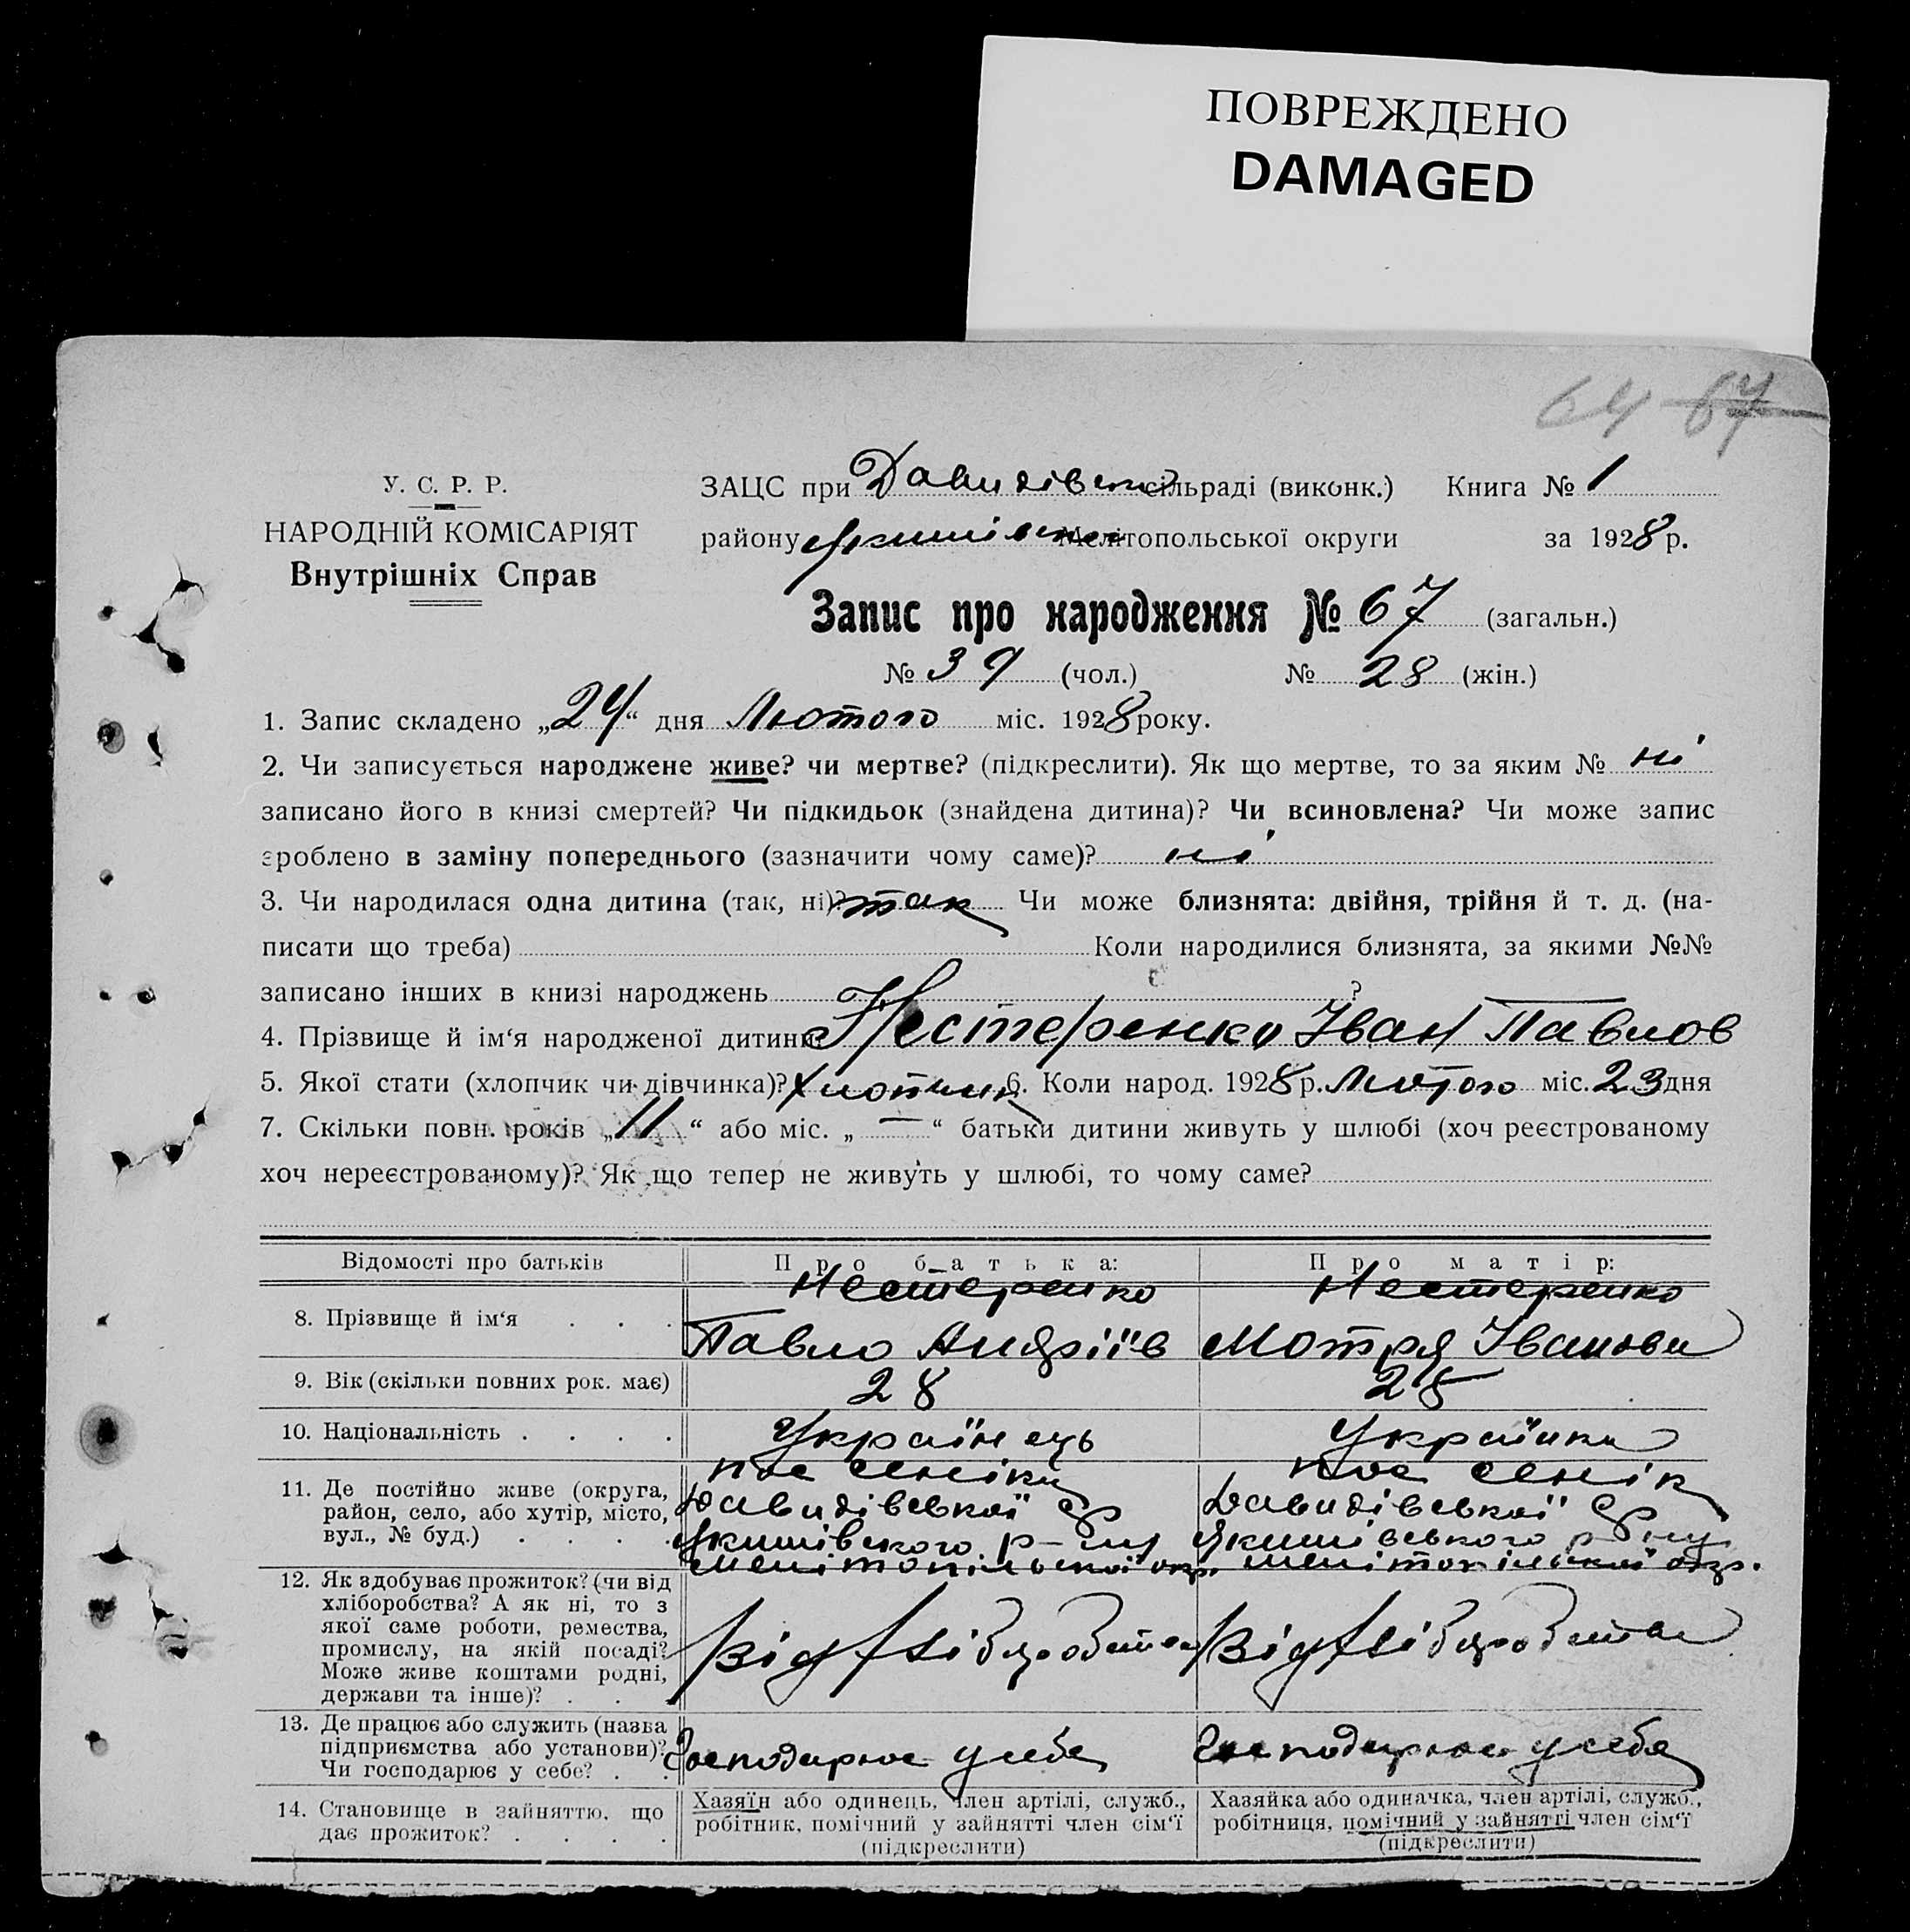 ПОВРЕЖДЕНО
DAMAGED
64 67
У. С. Р. Р.
НАРОДНІЙ КОМІСАРІЯТ
Внутрішніх Справ
ЗАЦС при Давидівській сільраді (виконк.) Книга № 1
району Мелітопольської округи за 1928 р.
Запис про народження № 67 (загальн.)
№ 39 (чол.) № 28 (жін.)
1. Запис складено „24“ дня Лютого міс. 1928 року.
2. Чи записується народжене живе? чи мертве? (підкреслити). Як що мертве, то за яким № ні
записано його в книзі смертей? Чи підкидьок (знайдена дитина)? Чи всиновлена? Чи може запис
зроблено в заміну попереднього (зазначити чому саме)? ні
3. Чи народилася одна дитина (так, ні)? так Чи може близнята: двійня, трійня й т. д. (на-
писати що треба) Коли народилися близнята, за якими №№
записано інших в книзі народжень ?
4. Прізвище й ім‘я народженої дитини: Нестеренко Іван Павлов
5. Якої стати (хлопчик чи дівчинка)? Хлопчик 6. Коли народ. 1928 р. Лютого міс. 23 дня
7. Скільки повн. років „11“ або міс. „—“ батьки дитини живуть у шлюбі (хоч реєстрованому
хоч нереєстрованому)? Як що тепер не живуть у шлюбі, то чому саме?
Відомості про батьків Про батька: Про матір:
8. Прізвище й ім‘я . . . Нестеренко Павло Андріїв Нестеренко Мотря Іванови
9. Вік (скільки повних рок. має) 28 28
10. Національність . . . . Українець Українка
11. Де постійно живе (округа,
район, село, або хутір, місто,
вул., № буд.) . . . .
Давидівської с/р
Якимівского р-ну
Мелітопільської окр.
Давидівської с/р
Якимівського р-ну
Мелітопільської окр.
12. Як здобуває прожиток? (чи від
хліборобства? А як ні, то з
якої саме роботи, ремества,
промислу, на якій посаді?
Може живе коштами родні,
держави та інше)? . .
Від хліборобства Від хліборобства
13. Де працює або служить (назва
підприємства або установи)?
Чи господарює у себе? . .
Господарює у себе Господарює у себе
14. Становище в зайняттю, що
дає прожиток? . . . .
Хазяїн або одинець, член артілі, служб.,
робітник, помічний у зайнятті член сім‘ї
(підкреслити)
Хазяйка або одиначка, член артілі, служб.,
робітниця, помічний у зайнятті член сім‘ї
(підкреслити)